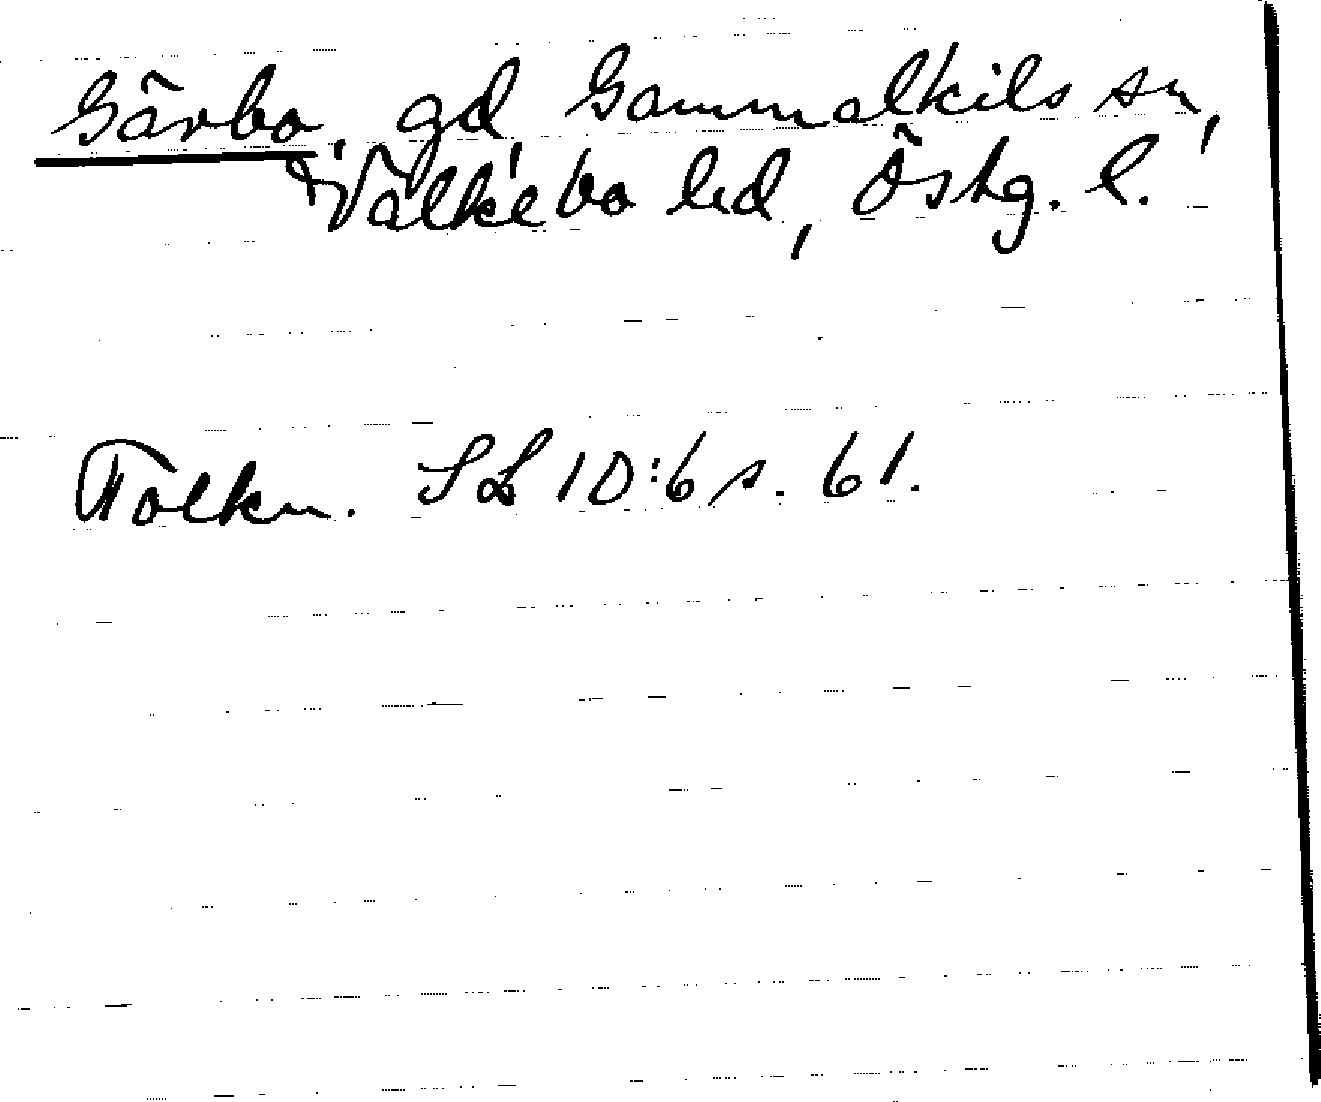 Gärbo, gd Gammalkils sn,
Valkebo hd, Östg. l.
Tolkn. SL 10:6 s. 61.